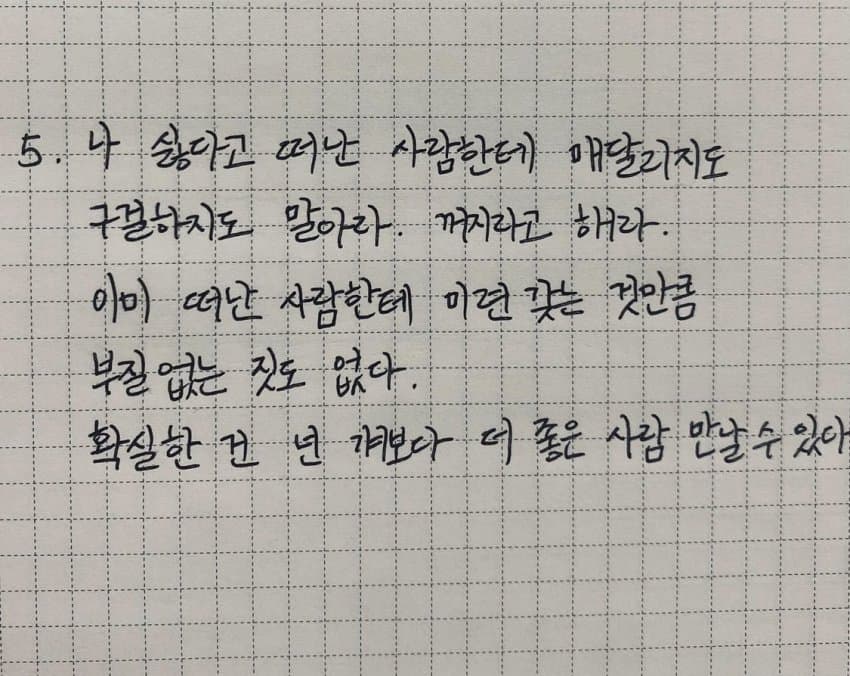 5. 나 싫다고 떠난 사람한테 매달리지도
구걸하지도 말아라. 꺼지라고 해라.
이미 떠난 사람한테 미련 갖는 것만큼
부질없는 짓도 없다.
확실한 건 넌 걔보다 더 좋은 사람 만날 수 있다